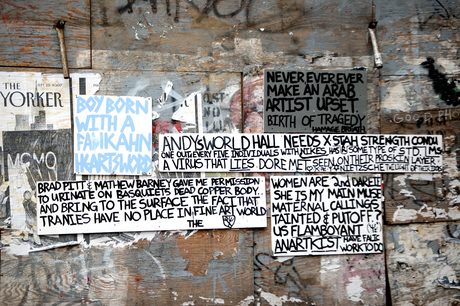 THE
YORKER
MOMO
BOY BORN
WITH A
FAHKAHN
HEARTSWORD
NEVER EVER EVER
MAKE AN ARAB
ARTIST UPSET.
BIRTH OF TRAGEDY
ANDYSWORLD HALL NEEDS X STAH STRENGTH CONDU
ONE OUT EVERY FIVE INDIVIDUALS WITH HAS SOME TYPE OF STD THIS
A VIRUS THAT LIES DORE MET SEEN ON THEIR MOSKEN LAYER
BRAD PITT & MATHEW BARNEY GAVE ME PERMISSION
TO URINATE ON BASQUIETS DEAD COPER BODY.
AND BRING TO THE SURFACE THE FACT THAT
TRANIES HAVE NO PLACE IN FINE ART WORLD
THE
WOMEN ARE 2ND DARLE
SHE IS MY MAIN MUSE
MATERNAL CALLINGS
TAINTED & PUTOFF?
US FLAMBOYANT
ANARTKIST HAVE
WORK TO DO